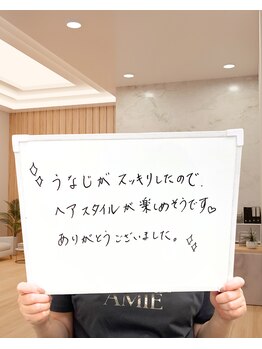 うなじがスッキリしたので、
ヘアスタイルが楽しめそうです♡
ありがとうございました。
AMIE